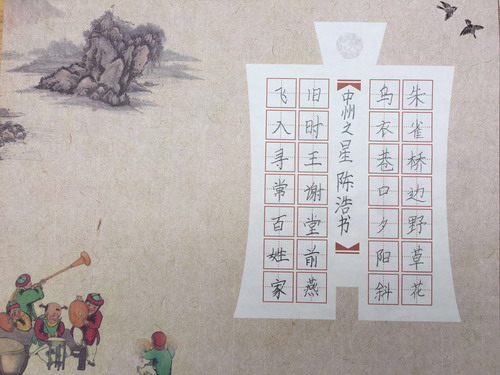 朱雀桥边野草花
乌衣巷口夕阳斜
中州之星陈浩书
旧时王谢堂前燕
飞入寻常百姓家